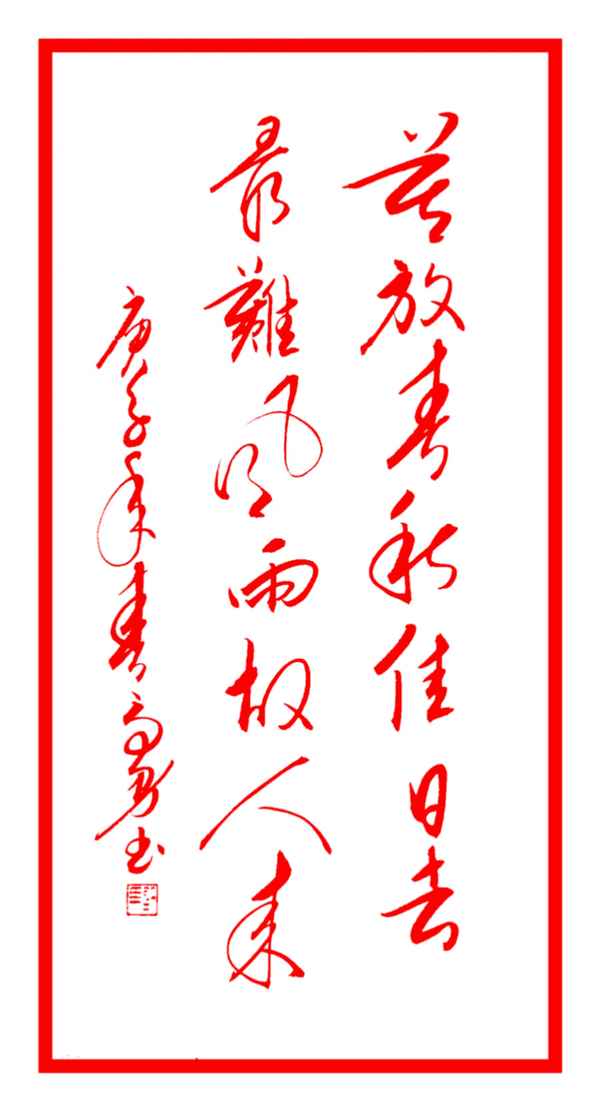 莫放春秋佳日去
最難風雨故人来
庚子年春高书